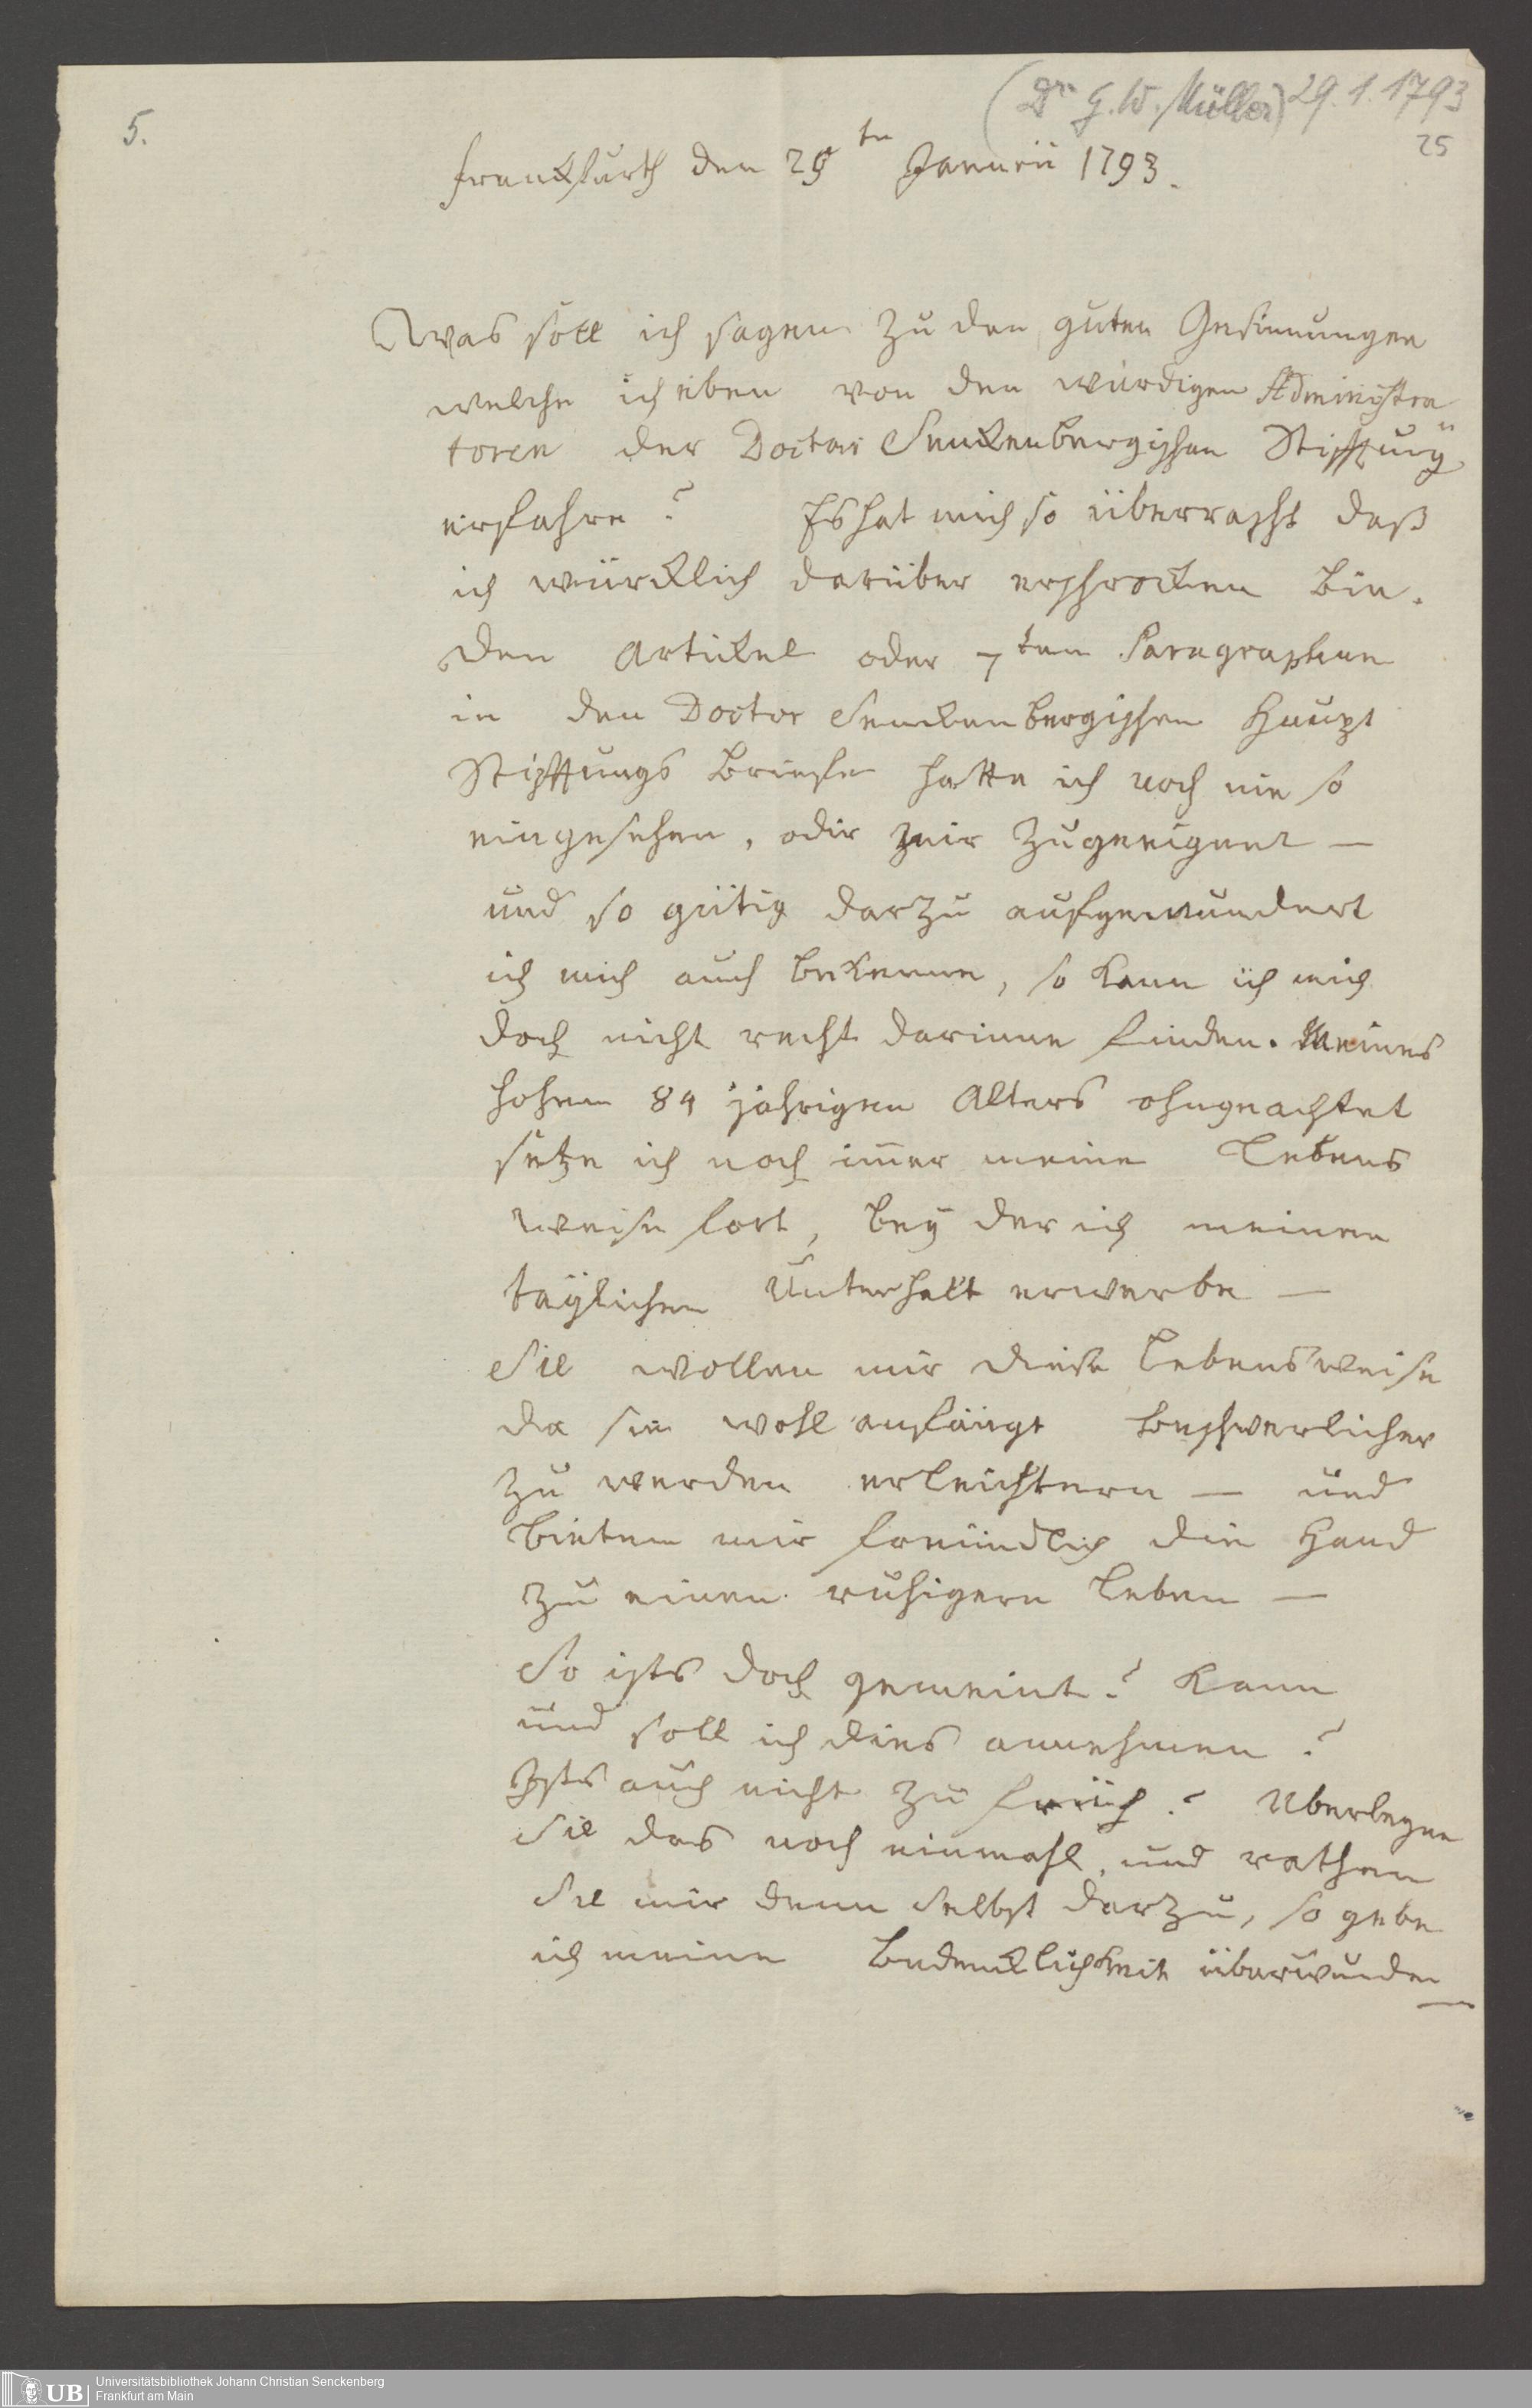 (Dr. G. W. Müller) 29.1.1793
5.
25
Franckfurth den 29ten Januarii 1793.
Was soll ich sagen zu den guten Gesinnungen
welche ich eben von den würdigen Administra
toren der Doctor Senckenbergischen Stifftung
erfahre? Es hat mich so überrascht daß
ich würcklich darüber erschrocken bin.
Den Artickel oder 7ten Paragraphen
in den Doctor Senckenbergischen Haupt
Stifftungs Briefe hatte ich noch nie so
eingesehen, oder mir zugeeignet —
und so gütig darzu aufgemundert
ich mich auch bekenne, so kann ich mich
doch nicht recht darinne finden. Meines
hohen 84 jährigen Alters ohngeachtet
setze ich noch im̄er meine Lebens
weise fort, bey der ich meinen
täglichen Unterhalt erwerbe —
Sie wollen mir diese Lebensweise
da sie wohl anfängt beschwerlicher
zu werden erleichtern — und
bieten mir freundlich die Hand
zu einen ruhigern Leben —
So ists doch gemeint? Kann
und soll ich dies annehmen?
Ists auch nicht zu früh? Uberlegen
Sie das noch einmahl, und rathen
Sie mir denn selbst darzu, so gebe
ich meine Bedencklichkeit überwunden —
UB
Universitätsbibliothek Johann Christian Senckenberg
Frankfurt am Main